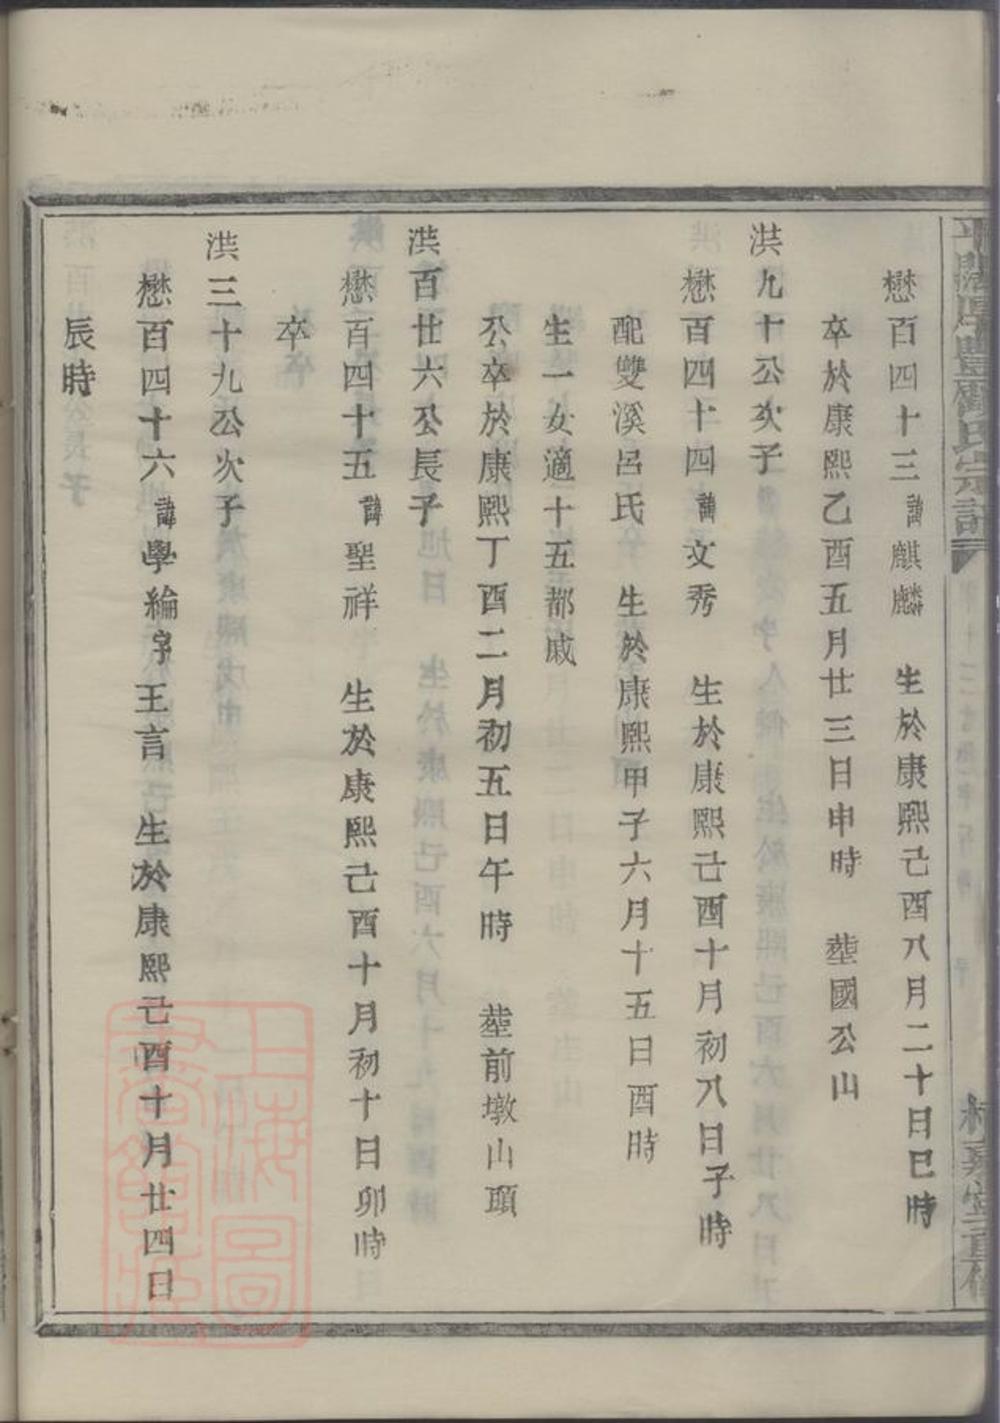 懋百四十三諱麒麟　生於康熙己酉八月二十日巳時
卒於康熙乙酉五月廿三日申時　塟國公山
洪九十公次子
懋百四十四諱文秀　生於康熙己酉十月初八日子時
配雙溪呂氏　生於康熙甲子六月十五日酉時
生一女適十五都戚
公卒於康熙丁酉二月初五日午時　塟前墩山頭
洪百廿六公長子
懋百四十五諱聖祥　生於康熙己酉十月初十日卯時
卒
洪三十九公次子
懋百四十六諱學綸字王言　生於康熙己酉十月廿四日
辰時
上海圖書館藏